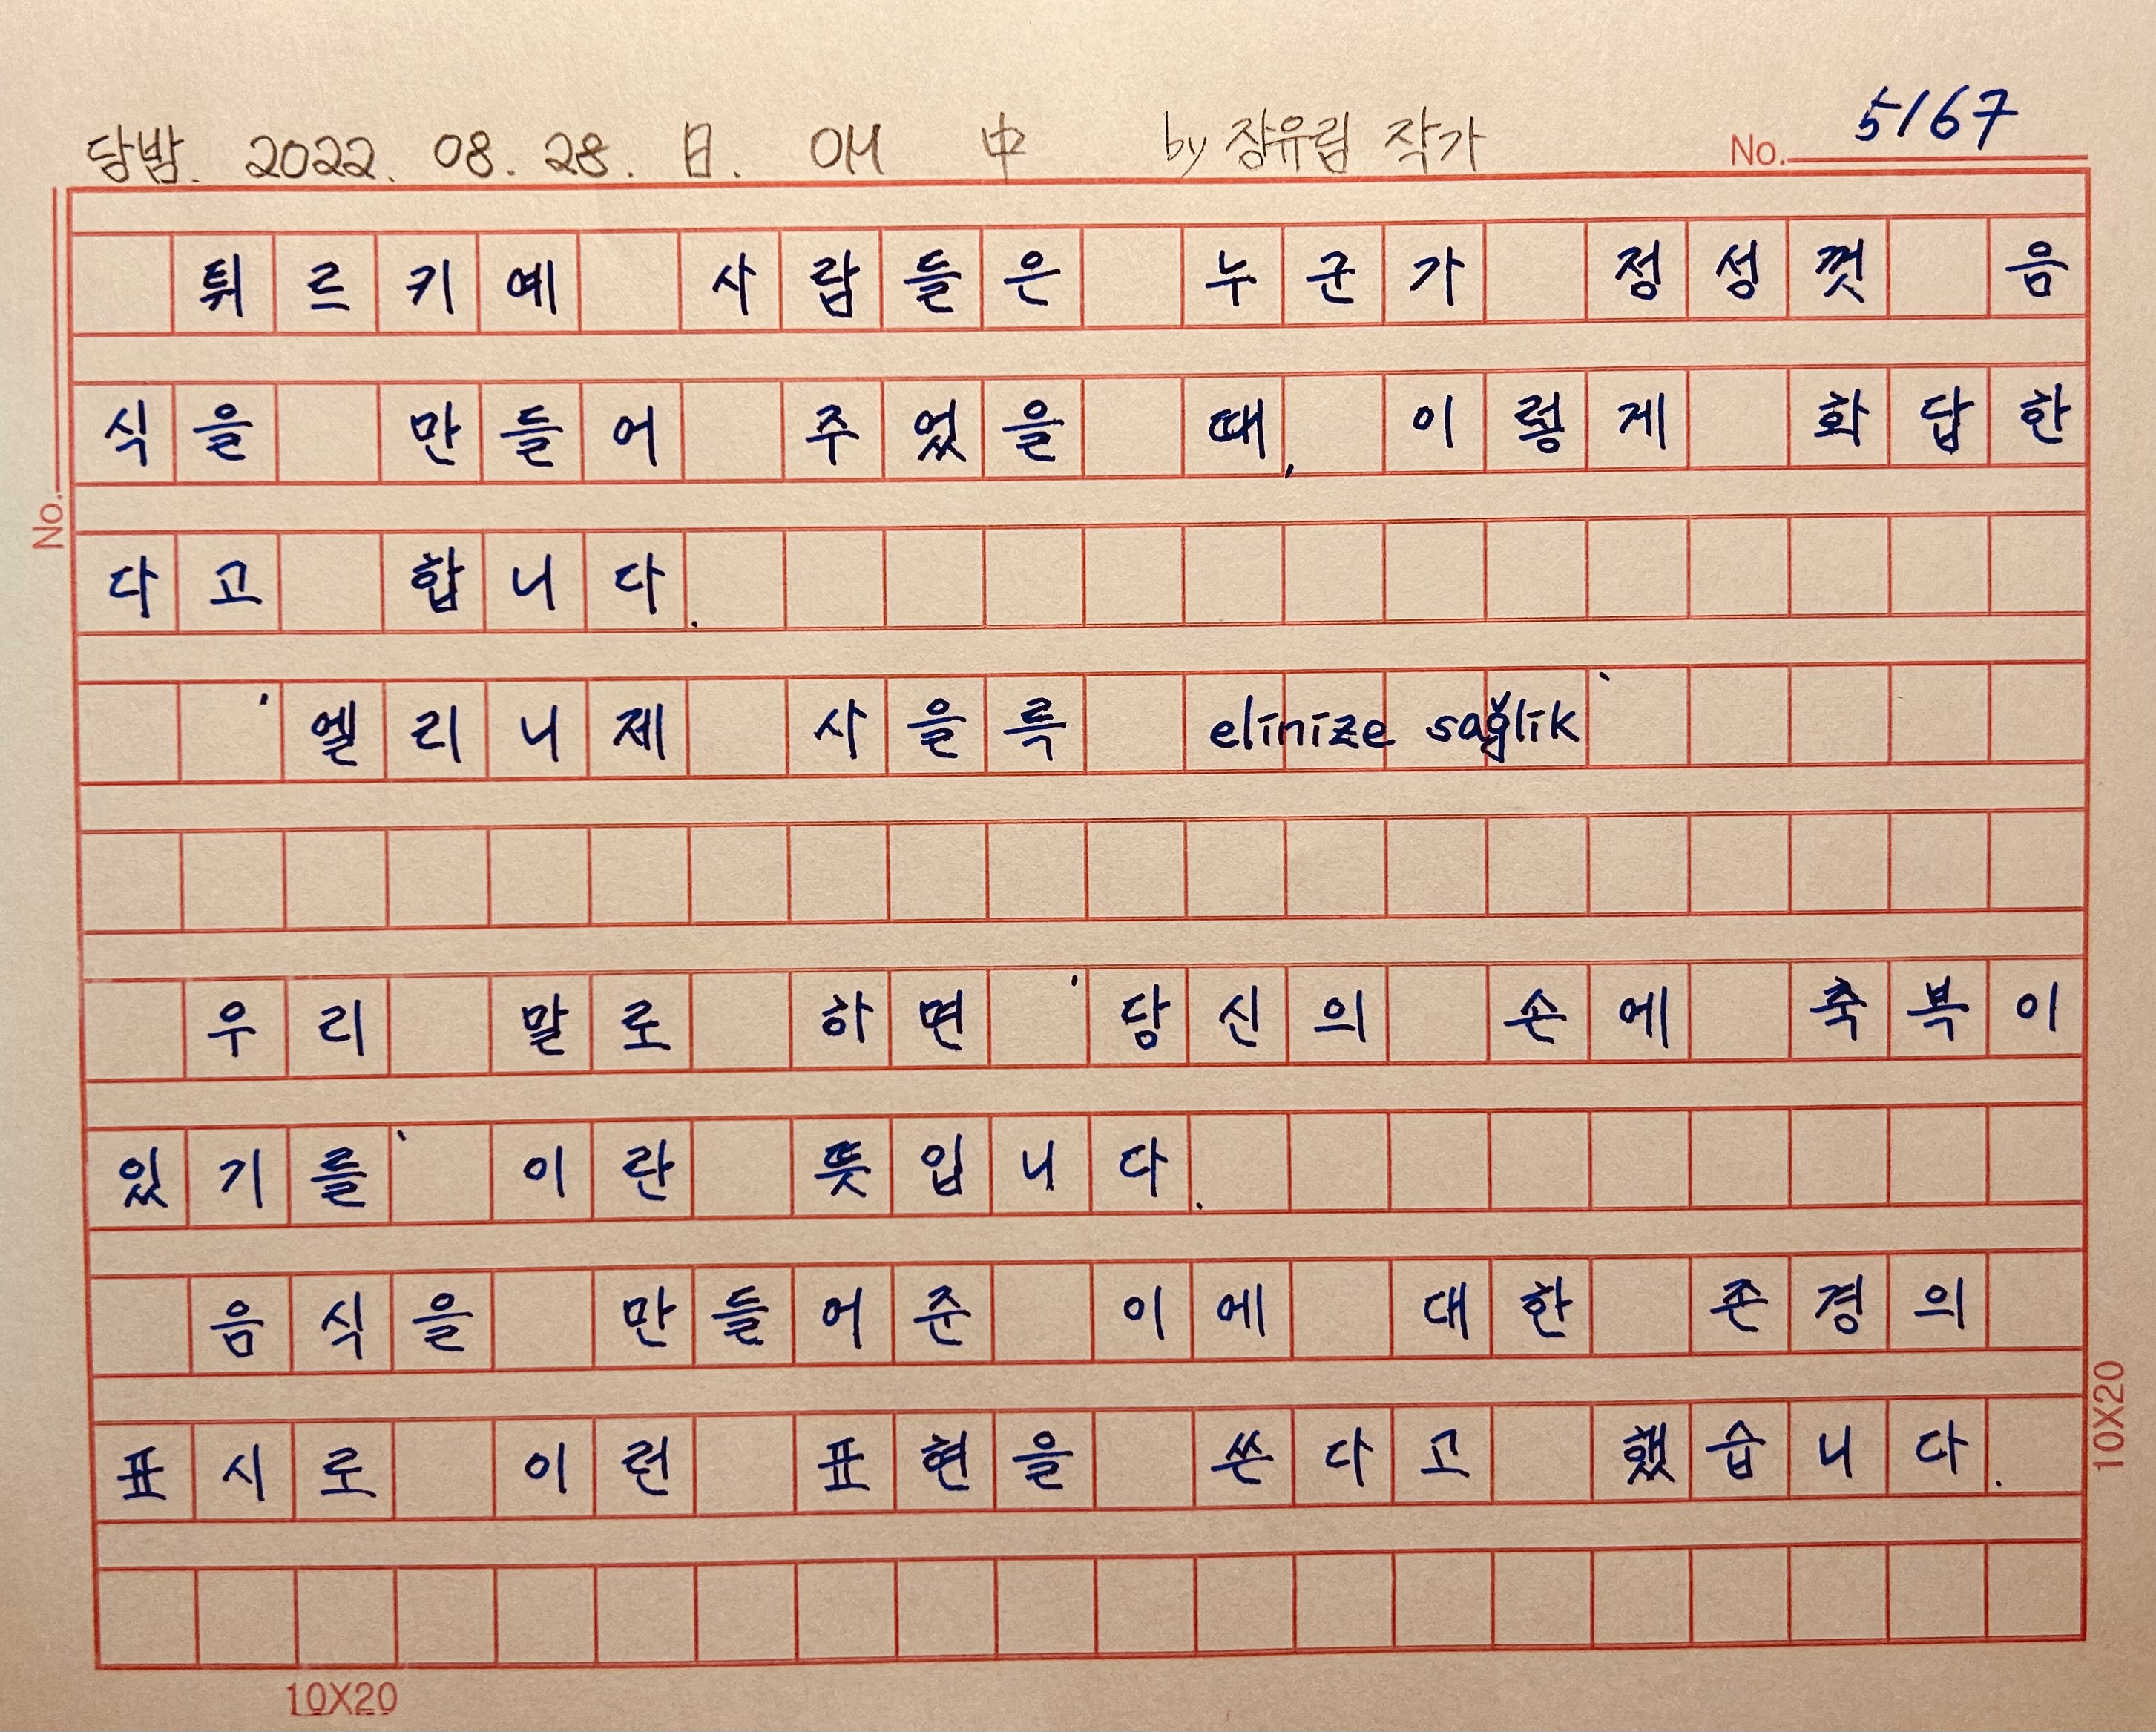 당밤. 2022. 08. 28. 日. 애 中 by 장유림 작가
No. 5167
튀르키예 사람들은 누군가 정성껏 음
식을 만들어 주었을 때, 이렇게 화답한
다고 합니다.
'엘리니제 사을륵 elinize sağlik'
우리 말로 하면 '당신의 손에 축복이
있기를' 이란 뜻입니다.
음식을 만들어준 이에 대한 존경의
표시로 이런 표현을 쓴다고 했습니다.
No.
10X20
10X20